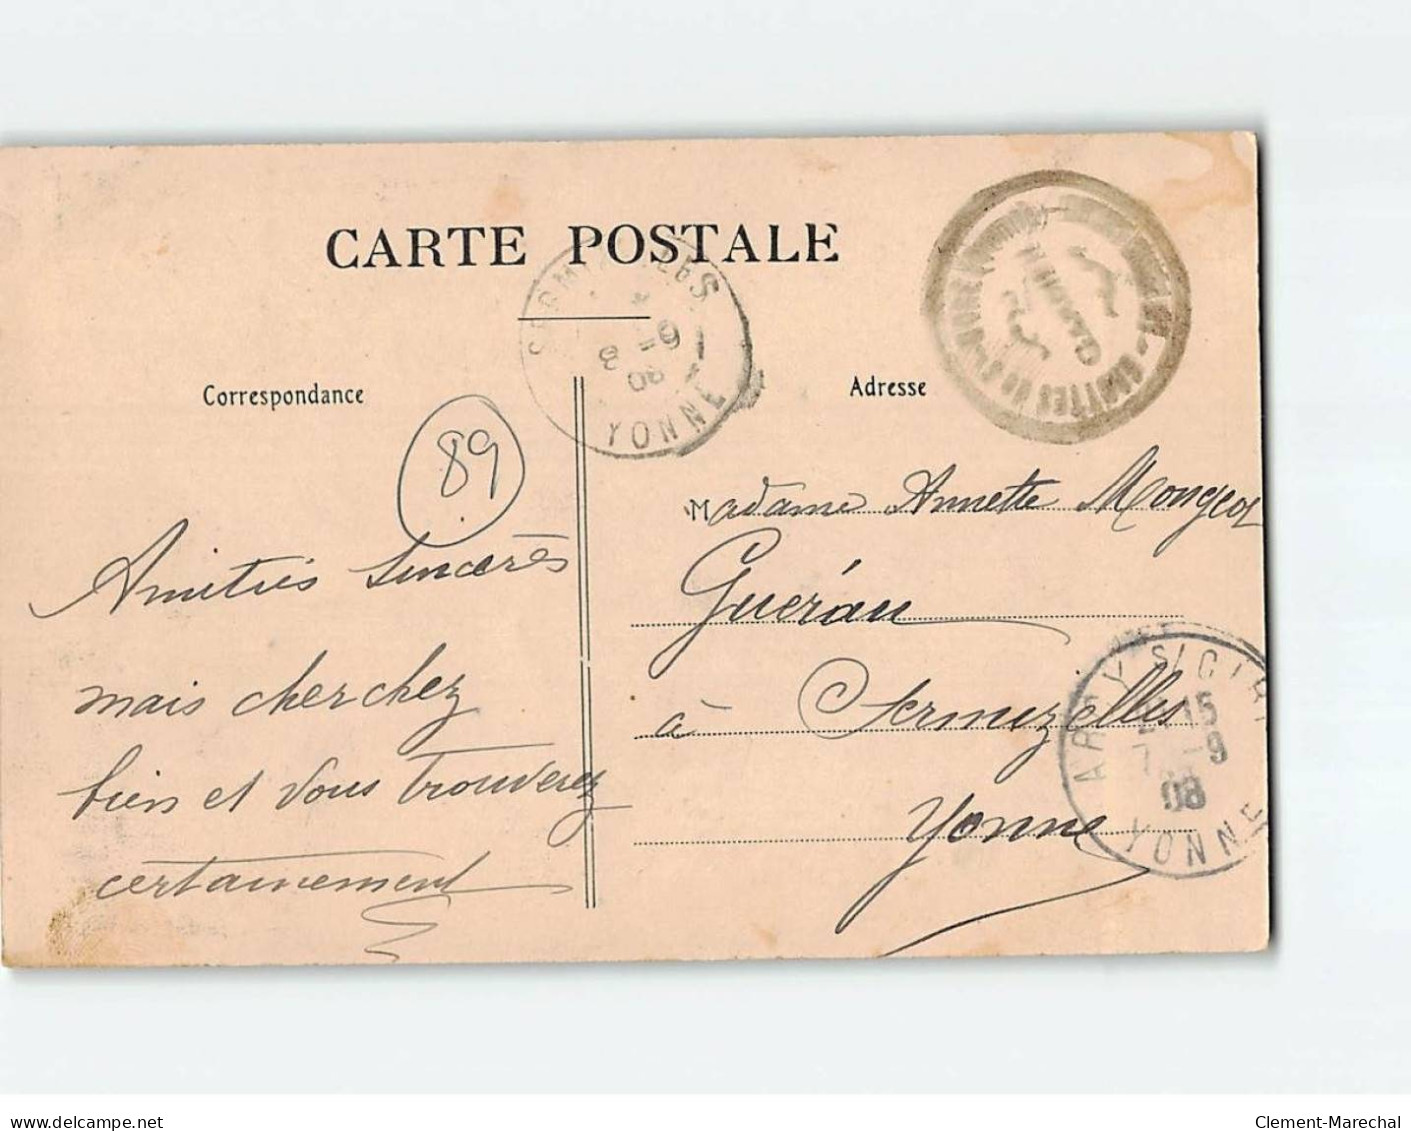 CARTE POSTALE
Correspondance
Adresse
89
Amitiés sincères
mais cherchez
bien et vous trouverez
certainement
Madame Annette Mongeot
Guérau
à Sermizelles
Yonne
SERMIZELLES
8 -9
08
YONNE
GROTTES
ARCY S/ CURE
21 15
7 -9
08
YONNE
www.delcampe.net
Clement-Marechal